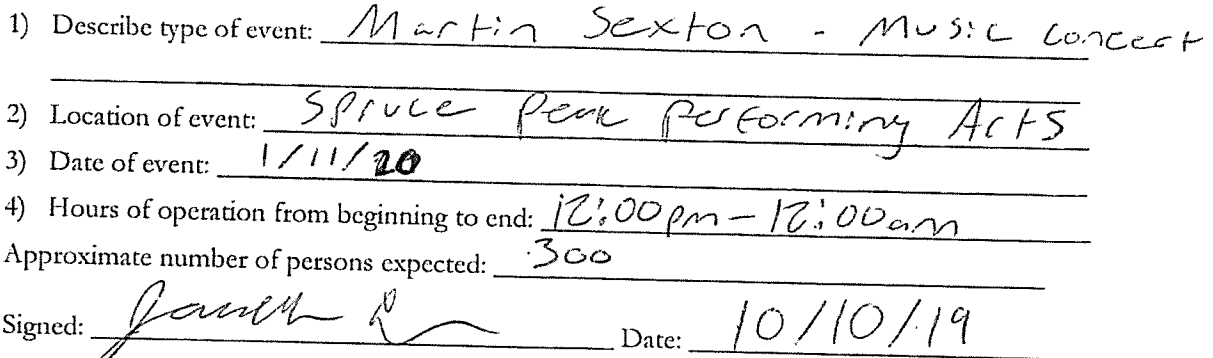 1) Describe type of event: Martin Sexton - Music Concert
2) Location of event: Spruce Peak Performing Arts
3) Date of event: 1/11/20
4) Hours of operation from beginning to end: 12:00pm - 12:00am
Approximate number of persons expected: 300
Signed: Date: 10/10/19